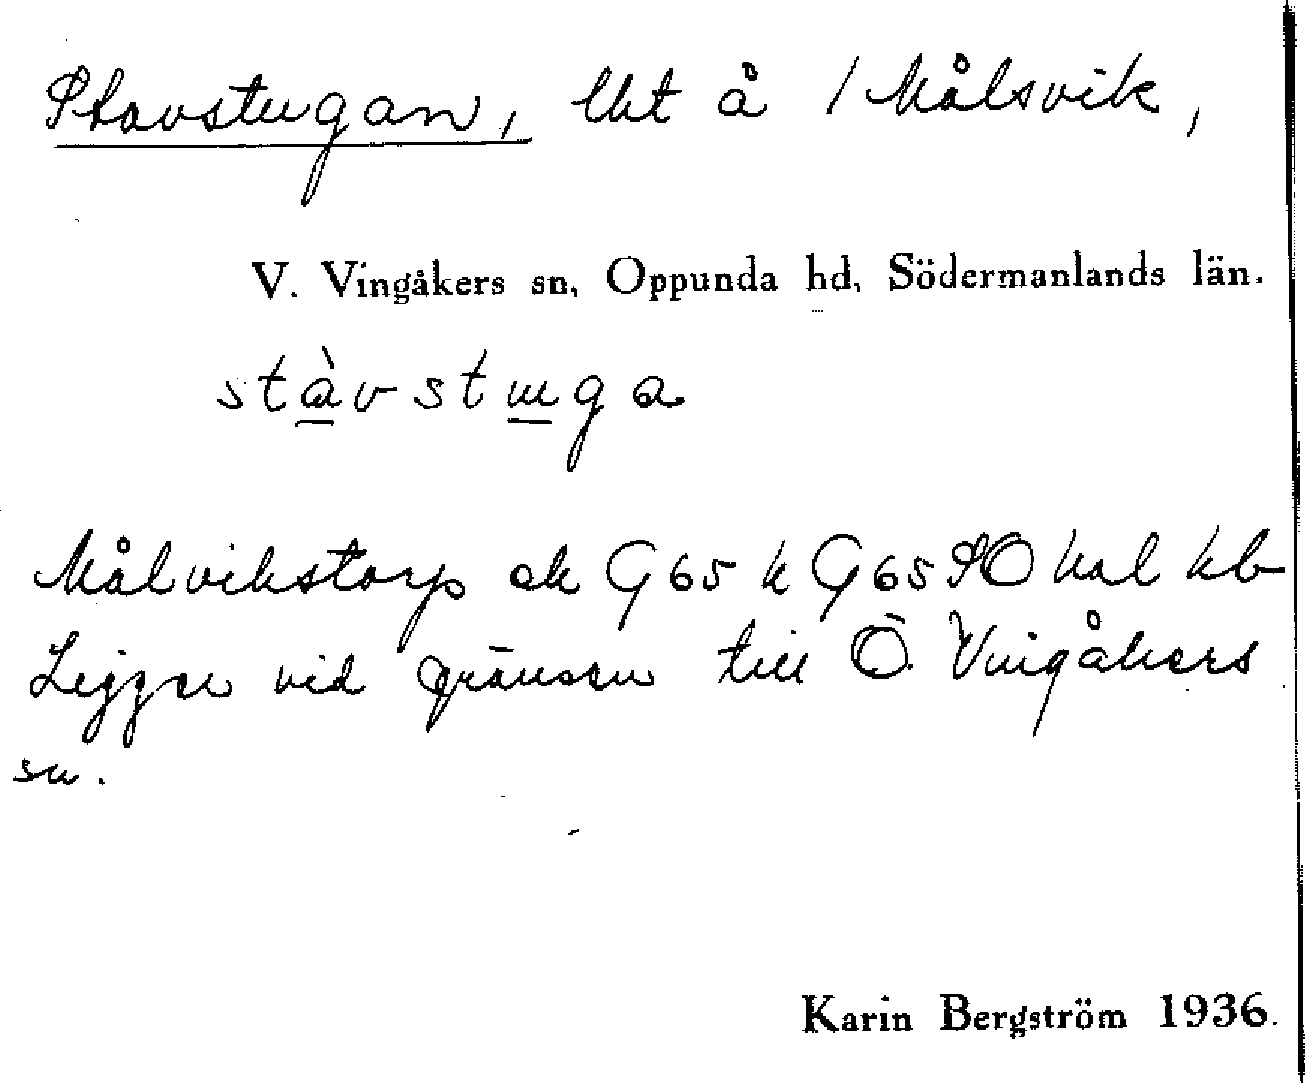 Stavstugan, lht å 1 Målsvik,
V. Vingåkers sn, Oppunda hd, Södermanlands län.
stàvstuga
Målvikstorp ek G65 k G65 SO hal kb
Ligger vid gränsen till Ö. Vingåkers
sn.
Karin Bergström 1936.